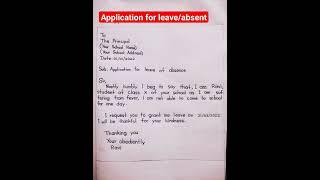 Application for leave/absent
To
The Principal
(Your School Name)
(Your School Address)
Sub: Application for leave of absence
Sir,
I beg to say that, I am Ravi,
student of class X of your school as I am suf
fering from fever, I am not able to come to school
for one day.
I request you to grant me leave on
I will be thankful for your kindness.
Thanking you
Your obediently
Ravi